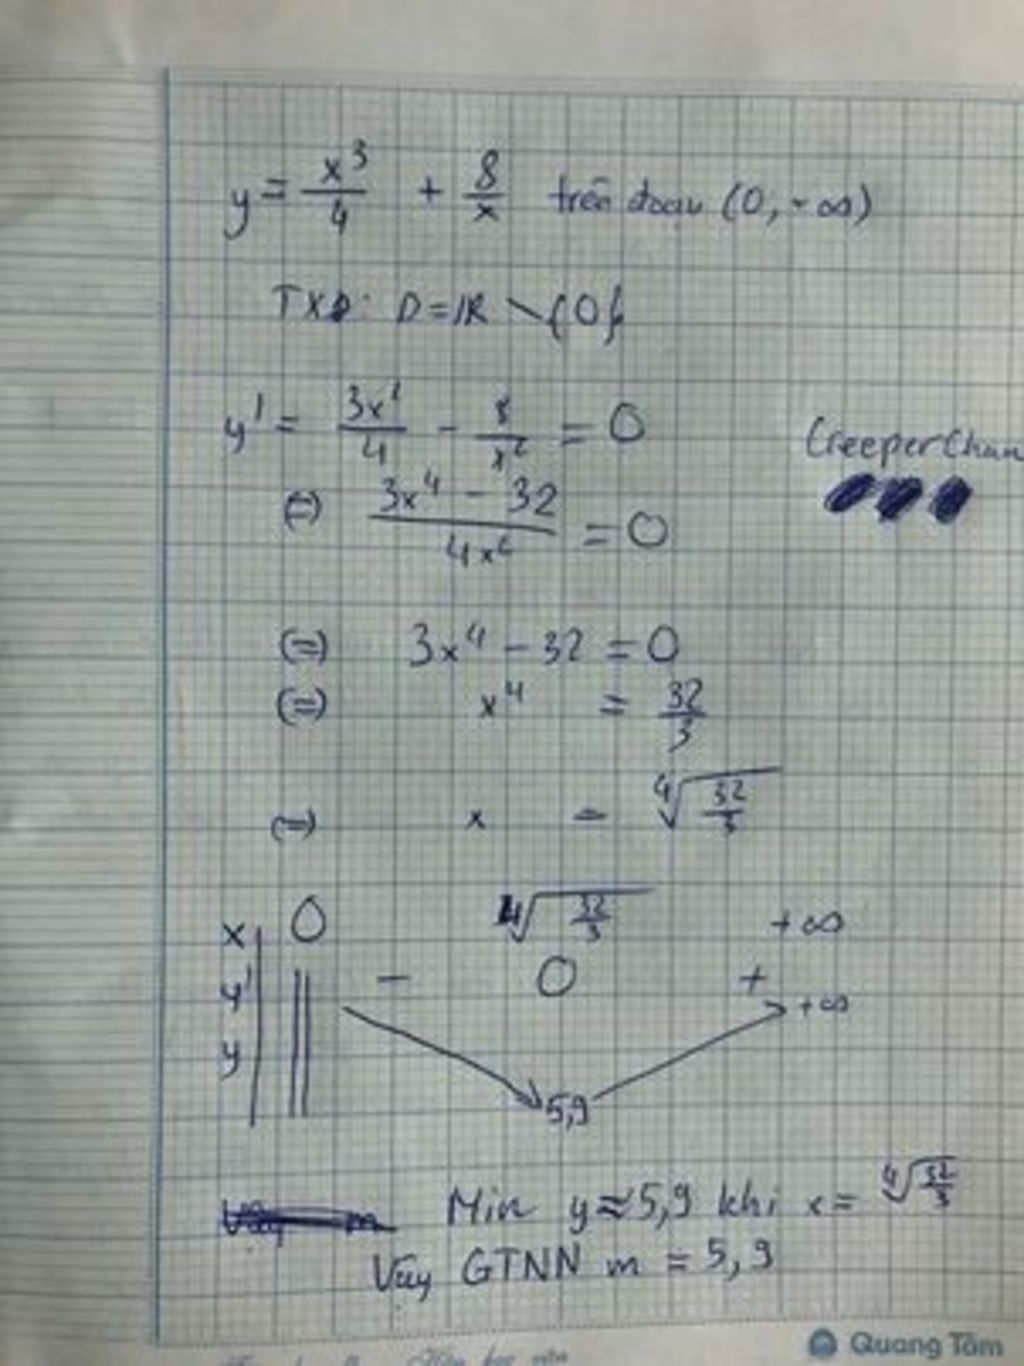 y = x³/4 + 8/x trên đoạn (0, -∞)
TXĐ: D = ℝ \ {0}
y' = 3x²/4 - 8/x² = 0
CreeperChan
(=) (3x⁴ - 32)/(4x²) = 0
(=) 3x⁴ - 32 = 0
(=) x⁴ = 32/3
(=) x = ⁴√(32/3)
x 0 ⁴√(32/3) +∞
y' - 0 +
y +∞
5,9
Min y ≈ 5,9 khi x = ⁴√(32/3)
Vậy GTNN m = 5,9
Quang Tâm